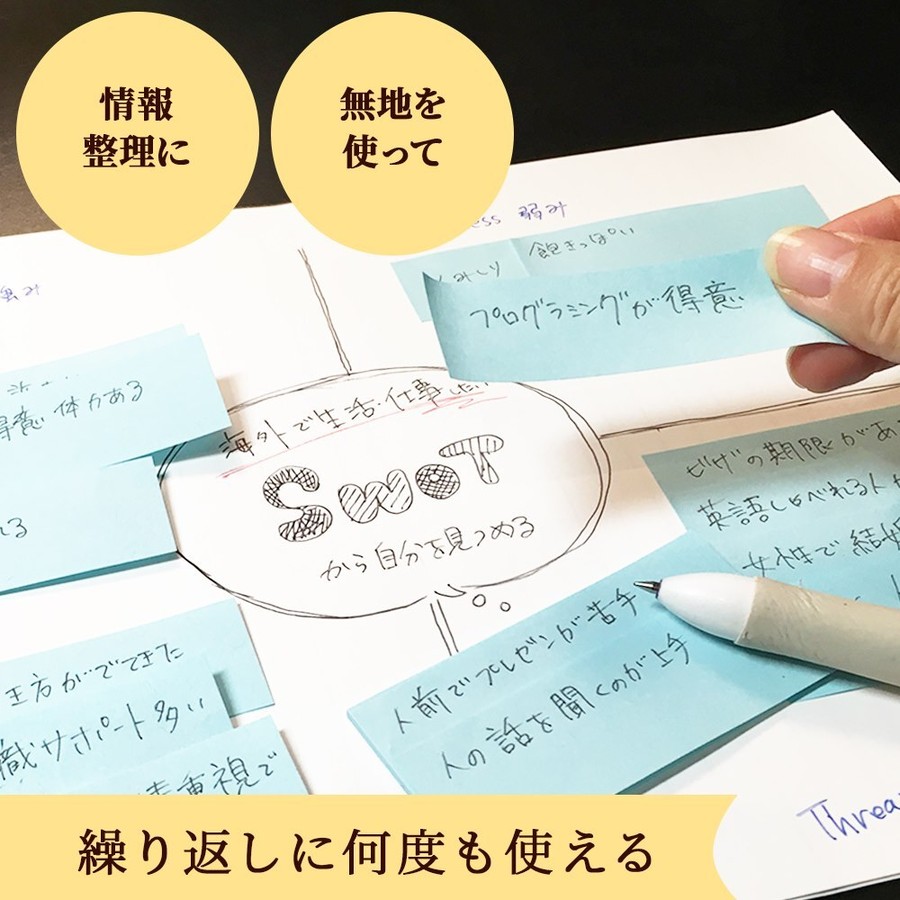 情報
整理に
無地を
使って
ess 弱み
飽きっぽい
プログラミングが得意
得意 体力ある
海外で生活・仕事したい
SWOT
から自分を見つめる
ビザの期限があ
英語しゃべれる人
女性で結婚
人前でプレゼンが苦手
人の話を聞くのが上手
生方がでてきた
職サポート多い
重視で
Threa
繰り返しに何度も使える